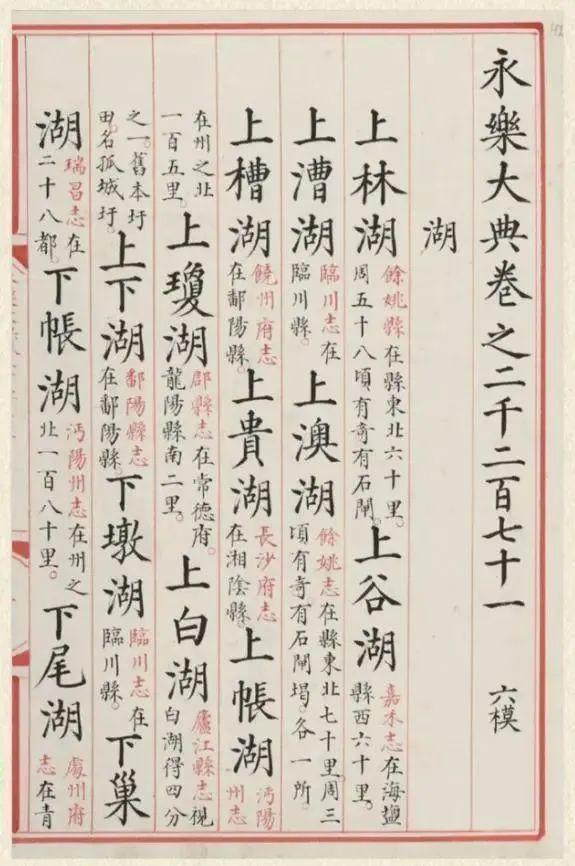 永樂大典卷之二千二百七十一 六模
湖
上林湖餘姚縣在縣東北六十里。周五十八頃有奇有石閘。上谷湖嘉禾志在海鹽縣西六十里。
上漕湖臨川志在臨川縣。上澳湖餘姚志在縣東北七十里。周三頃有奇。有石閘堨。各一所。
上槽湖饒州府志在鄱陽縣。上貴湖長沙府志在湘陰縣。上帳湖沔陽州志
在州之北一百五里。上瓊湖郡縣志在常德府。龍陽縣南二里。上白湖廬江縣志視白湖得四分
之一。舊本圩田。名孤城圩。上下湖鄱陽縣志在鄱陽縣。下墩湖臨川志在臨川縣。下巢
湖瑞昌志在二十八都。下帳湖沔陽州志在州之北一百八十里。下尾湖處州府志在青